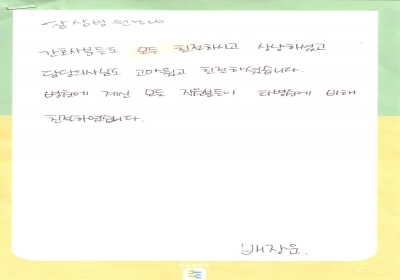 삼성병원에
간호사분들도 모두 친절하시고 상냥하셨고
담당의사님도 고마웠고 친절하셨습니다.
병원에 계신 모든 직원분들이 타병원에 비해
친절하였습니다.
배장음.